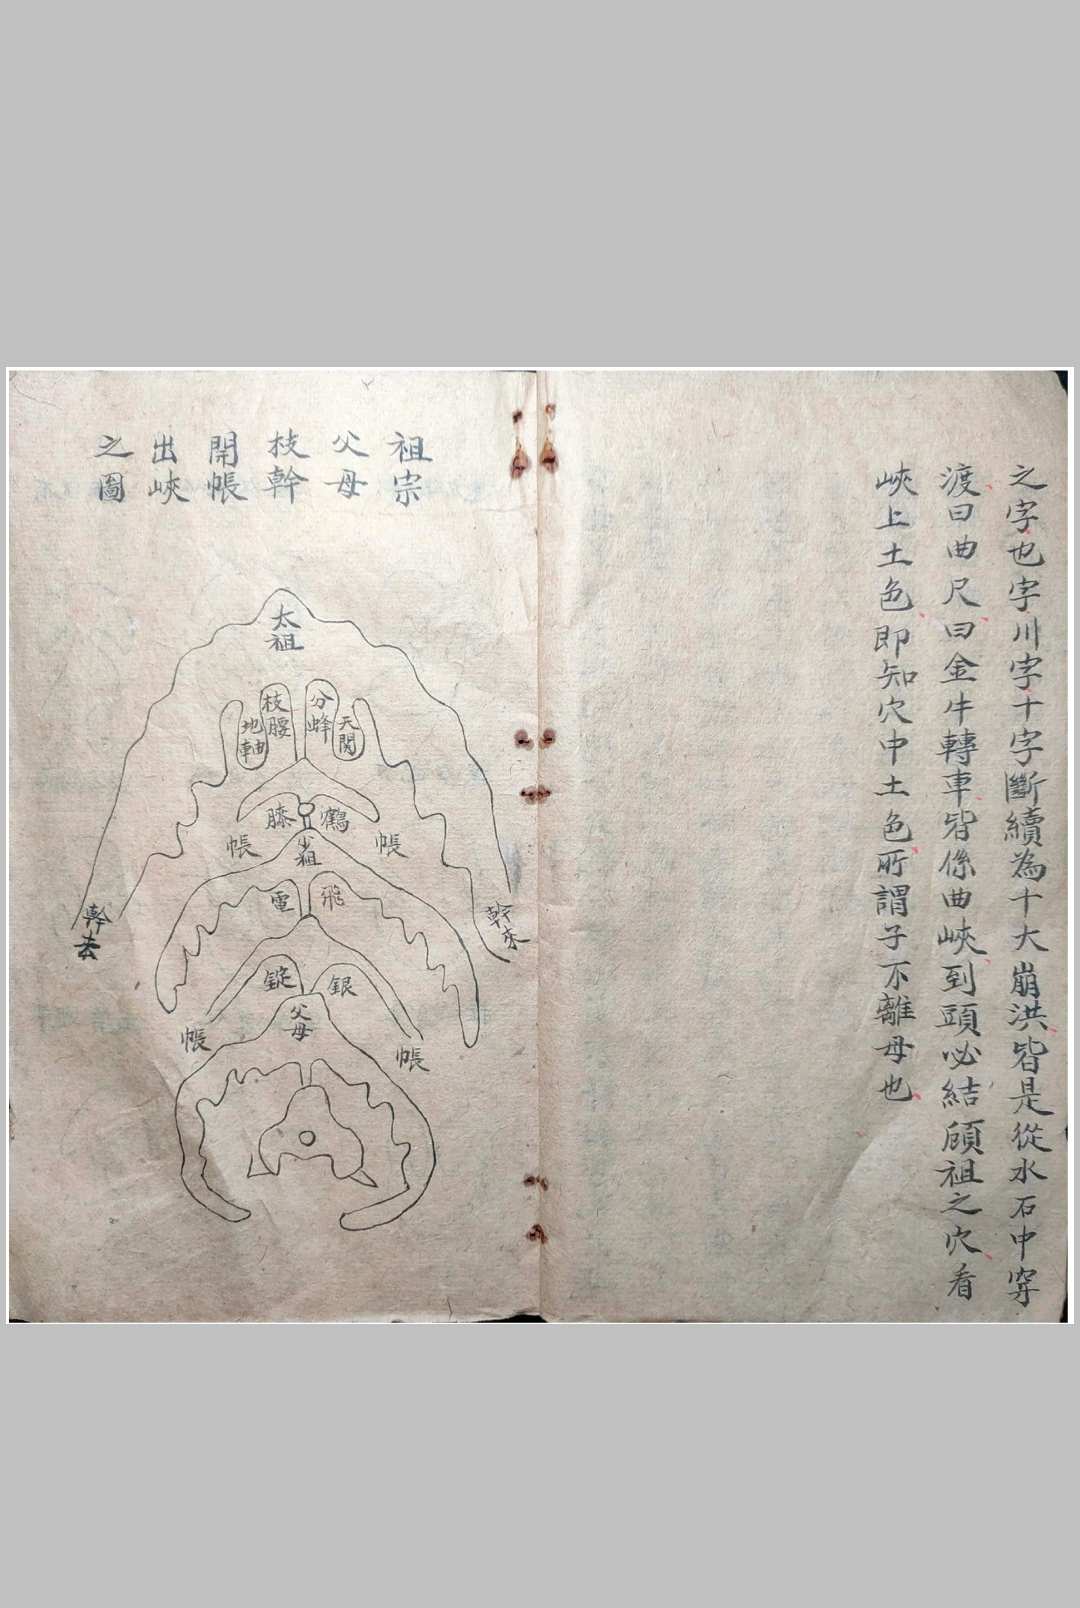 之字也字川字十字斷續為十大崩洪皆是從水石中穿
渡曰曲尺曰金牛轉車皆係曲峽到頭必結顧祖之穴看
峽上土色即知穴中土色所謂子不離母也
祖宗
父母
枝幹
開帳
出峽
之圖
太祖
分蜂
枝腰
天関
地軸
鶴膝
帳
帳
少祖
幹來
幹去
飛電
銀錠
父母
帳
帳